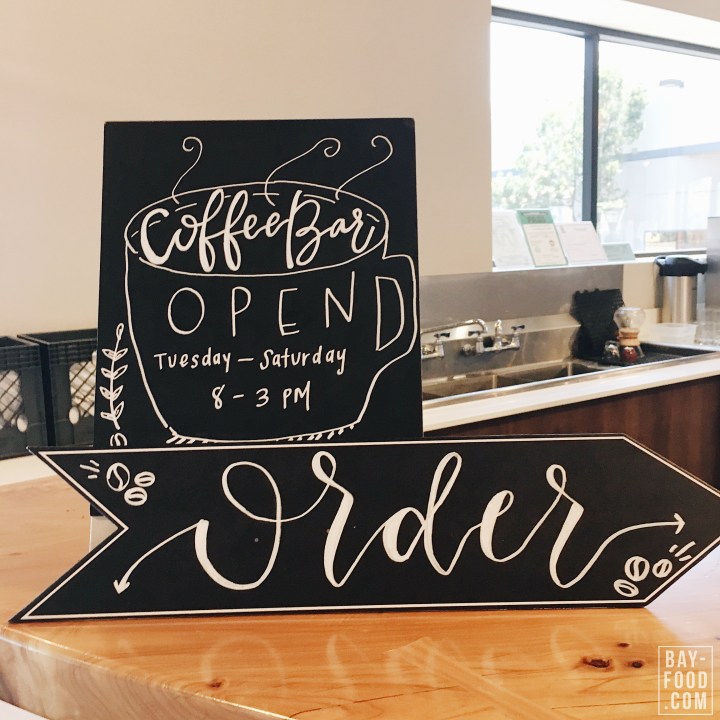 Coffee Bar
OPEN
Tuesday — Saturday
8 - 3 PM
Order
BAY-
FOOD
.COM